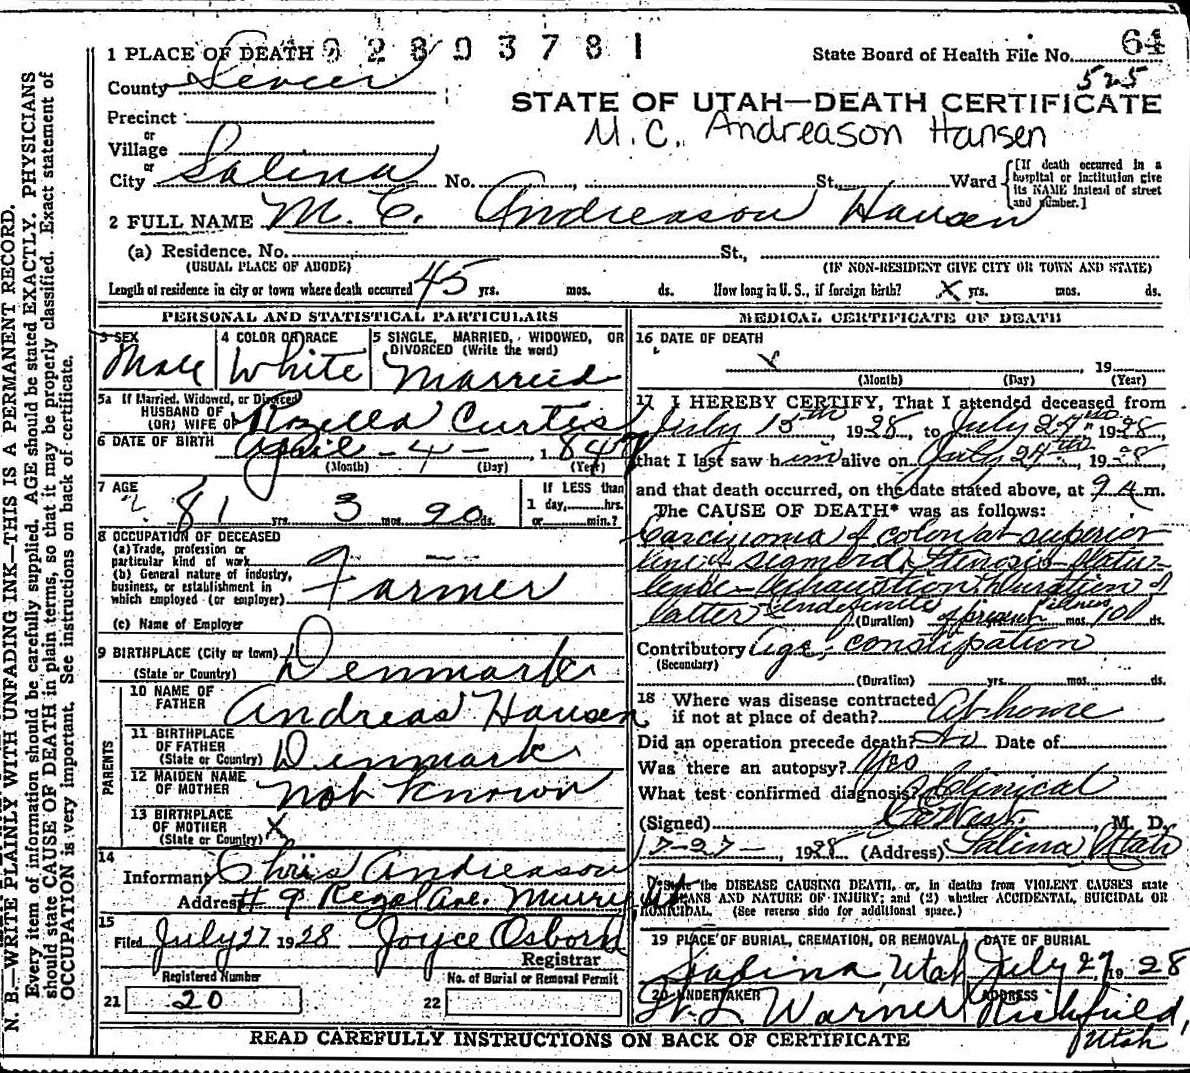 1 PLACE OF DEATH 92803781
State Board of Health File No. 64
525
County Sevier
STATE OF UTAH—DEATH CERTIFICATE
M.C. Andreason Hansen
Precinct
or
Village
or
City Salina No. , St., Ward
[If death occurred in a hospital or institution give its NAME instead of street and number.]
2 FULL NAME M. C. Andreason Hansen
(a) Residence. No. St.,
(USUAL PLACE OF ABODE) (IF NON-RESIDENT GIVE CITY OR TOWN AND STATE)
Length of residence in city or town where death occurred 45 yrs. mos. ds. How long in U. S., if foreign birth? X yrs. mos. ds.
PERSONAL AND STATISTICAL PARTICULARS
3 SEX Male
4 COLOR OR RACE White
5 SINGLE, MARRIED, WIDOWED, OR DIVORCED (Write the word) Married
5a If Married, Widowed, or Divorced
HUSBAND OF
(OR) WIFE OF Rozella Curtes
6 DATE OF BIRTH April - 4 - , 1847
(Month) (Day) (Year)
7 AGE 81 yrs. 3 mos. 20 ds.
If LESS than
1 day, hrs.
or min.?
8 OCCUPATION OF DECEASED
(a) Trade, profession or
particular kind of work
(b) General nature of industry,
business, or establishment in
which employed (or employer) Farmer
(c) Name of Employer
9 BIRTHPLACE (City or town)
(State or Country) Denmark
PARENTS
10 NAME OF
FATHER Andreas Hansen
11 BIRTHPLACE
OF FATHER
(State or Country) Denmark
12 MAIDEN NAME
OF MOTHER Not Known
13 BIRTHPLACE
OF MOTHER
(State or Country) X
14
Informant Chris Andreason
Address # 9 Regal Ave. Murry Ut
15
Filed July 27 1928 Joyce Osborn
Registrar
Registered Number
21 20
No. of Burial or Removal Permit
22
MEDICAL CERTIFICATE OF DEATH
16 DATE OF DEATH
, 19
(Month) (Day) (Year)
17 I HEREBY CERTIFY, That I attended deceased from
July 15th, 1928, to July 24th 1928,
that I last saw him alive on July 24th, 1928,
and that death occurred, on the date stated above, at 9 A. m.
The CAUSE OF DEATH* was as follows:
Carcinoma of colon at superior
line of sigmoid. Stenosis - flatu-
lence - exhaustion. Duration of
latter indefinite
(Duration) of present illness mos. 10 ds.
Contributory Age, constipation
(Secondary)
(Duration) yrs. mos. ds.
18 Where was disease contracted
if not at place of death? At home
Did an operation precede death? No Date of
Was there an autopsy? Yes
What test confirmed diagnosis? Clinical
(Signed) West, M. D.
7-27-, 1928 (Address) Salina Utah
*State the DISEASE CAUSING DEATH, or, in deaths from VIOLENT CAUSES state
MEANS AND NATURE OF INJURY; and (2) whether ACCIDENTAL, SUICIDAL OR
HOMICIDAL. (See reverse side for additional space.)
19 PLACE OF BURIAL, CREMATION, OR REMOVAL Salina, Utah
DATE OF BURIAL July 27, 1928
20 UNDERTAKER W. L. Warner
ADDRESS Richfield, Utah
READ CAREFULLY INSTRUCTIONS ON BACK OF CERTIFICATE
N. B.—WRITE PLAINLY WITH UNFADING INK—THIS IS A PERMANENT RECORD.
Every item of information should be carefully supplied. AGE should be stated EXACTLY. PHYSICIANS
should state CAUSE OF DEATH in plain terms, so that it may be properly classified. Exact statement of
OCCUPATION is very important. See instructions on back of certificate.